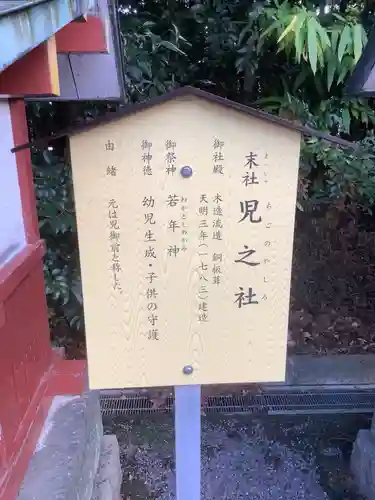 末社 児之社
まっしゃ ちごのやしろ
御社殿 木造流造 銅板葺
天明三年(一七八三)建造
御祭神 若年神
わかとしのかみ
御神徳 幼児生成・子供の守護
由緒 元は児御前と称した。